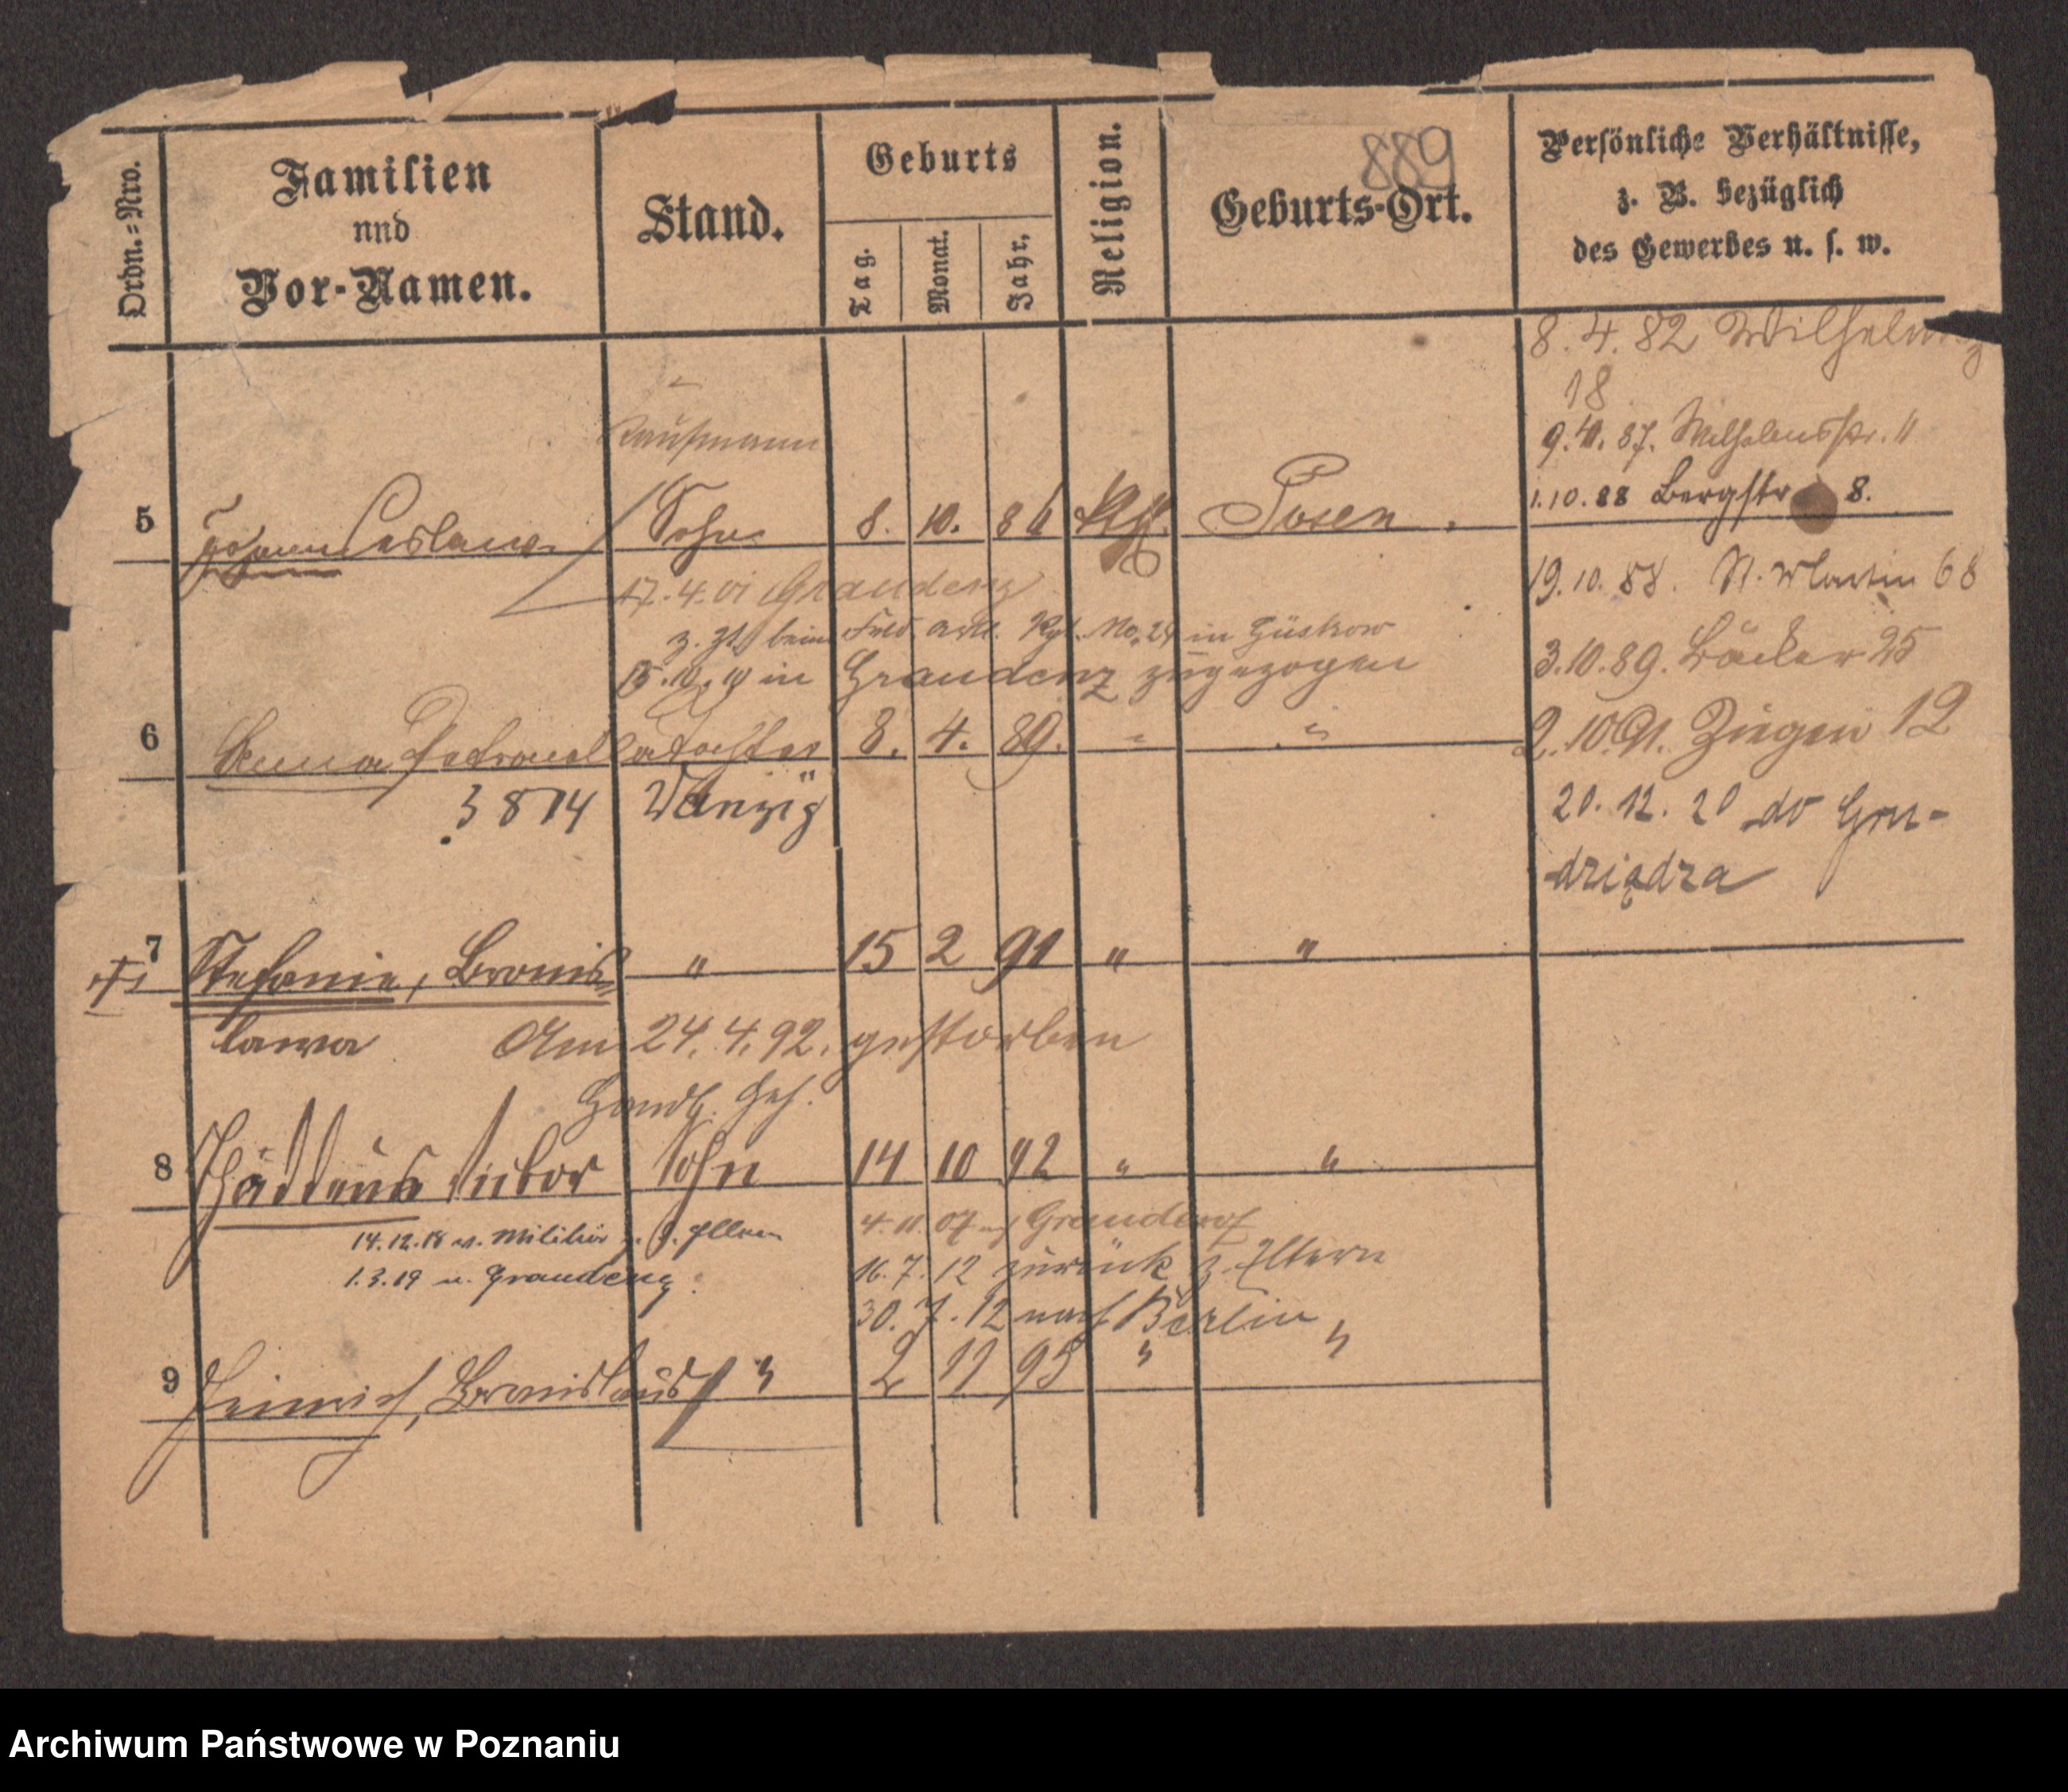 889
Ordn.=Nro.
Familien
und
Vor-Namen.
Stand.
Geburts
Tag.
Monat.
Jahr.
Religion.
Geburts-Ort.
Persönliche Verhältnisse,
z. B. bezüglich
des Gewerbes u. s. w.
8. 4. 82
18
Kaufmann
9. 87. Wilhelmsstr. 11
1.10.88 Bergstr 8.
5 Ceslaus Sohn 8. 10. 86 Kth. Posen.
19. 10. 88. St. Martin 68
17. 4. 01 Graudenz
z. Zt. beim Feld Artl. Rgt. No. 24 in Güstrow
3.10.89. Bäcker 25
in Graudenz zugezogen
6 Anna Petronella Tochter 8. 4. 89. " "
2. 10. 91. Ziegen 12
3 8 14 Danzig
20. 12. 20 do Gru-
dziądza
7 Stefanie, Bronis= " 15 2 91 " "
lawa Am 24. 4. 92. gestorben
Handl. Geh.
8 Thaddäus Tibor Sohn 14 10 92 " "
14.12.18 v. Militär z. d. Eltern
4. 11. 07 n Graudenz
1.3.19 n. Graudenz.
16. 7. 12 zurück z. Eltern
30. 7. 12 nach Berlin
9 Heinrich, Bronislaus " 2 11 95 " "
Archiwum Państwowe w Poznaniu